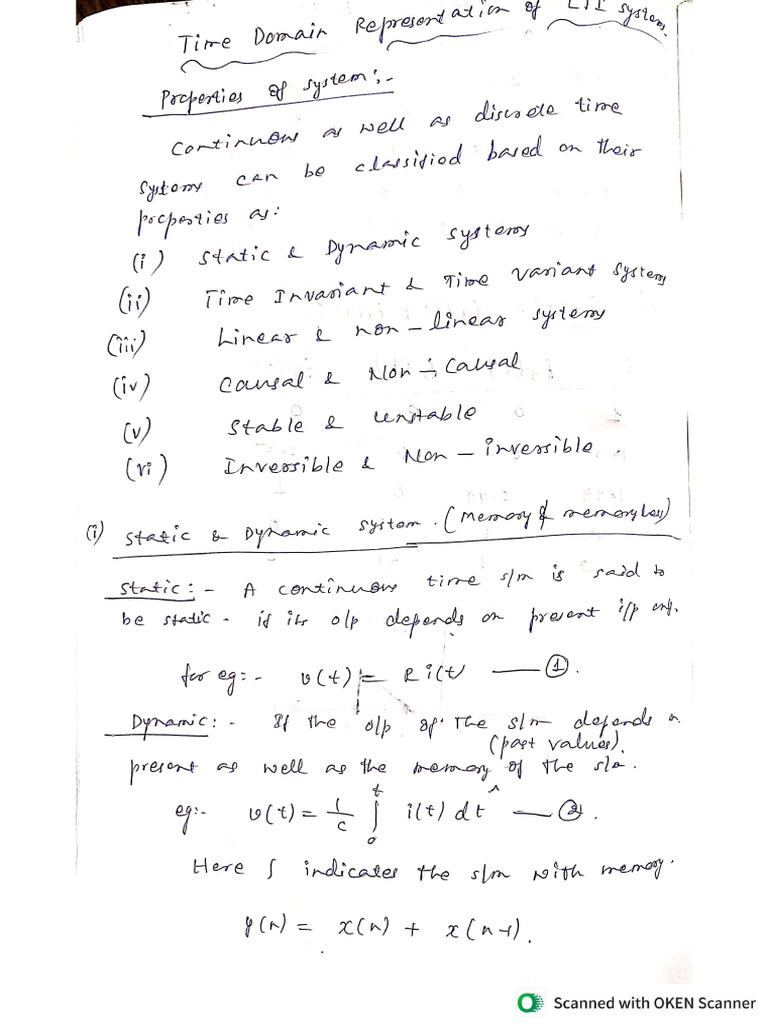 Time Domain Representation of LTI System.
Properties of system:-
Continuous as well as discrete time
systems can be classified based on their
properties as:
(i) Static & Dynamic systems
(ii) Time Invariant & Time Variant systems
(iii) Linear & non-linear systems
(iv) Causal & Non-Causal
(v) Stable & Unstable
(vi) Inversible & Non-inversible.
(i) Static & Dynamic system. (Memory & memoryless)
Static:- A continuous time s/m is said to
be static - if its o/p depends on present i/p only.
for eg:- v(t) = R i(t) — ①.
Dynamic:- If the o/p of the s/m depends on
(past values).
present as well as the memory of the s/m.
eg:- v(t) = 1/C ∫₀ᵗ i(t) dt — ②.
Here ∫ indicates the s/m with memory.
y(n) = x(n) + x(n-1).
Scanned with OKEN Scanner